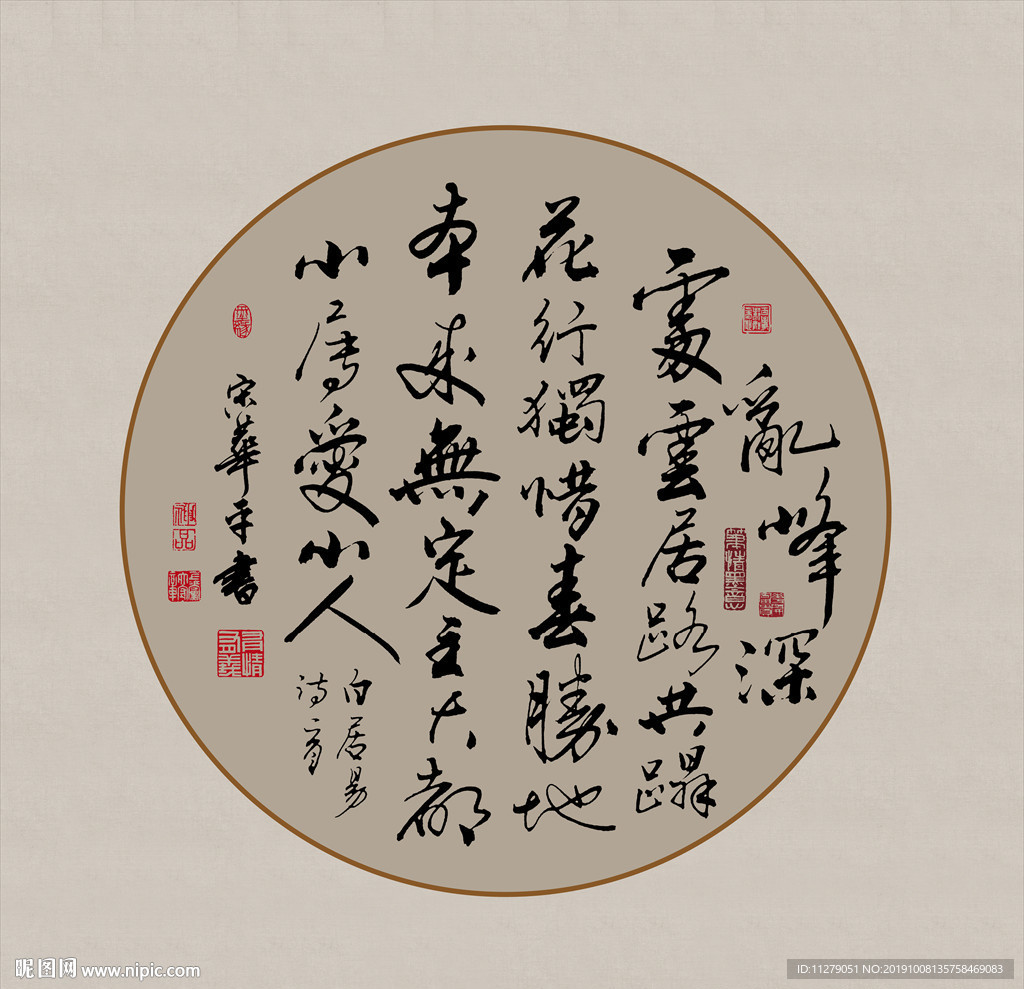 亂峰深
處雲居路共蹋
花行獨惜春勝地
本來無定主大都
山属愛山人
白居易
詩
宋華平書
昵图网 www.nipic.com
ID:11279051 NO:20191008135758469083